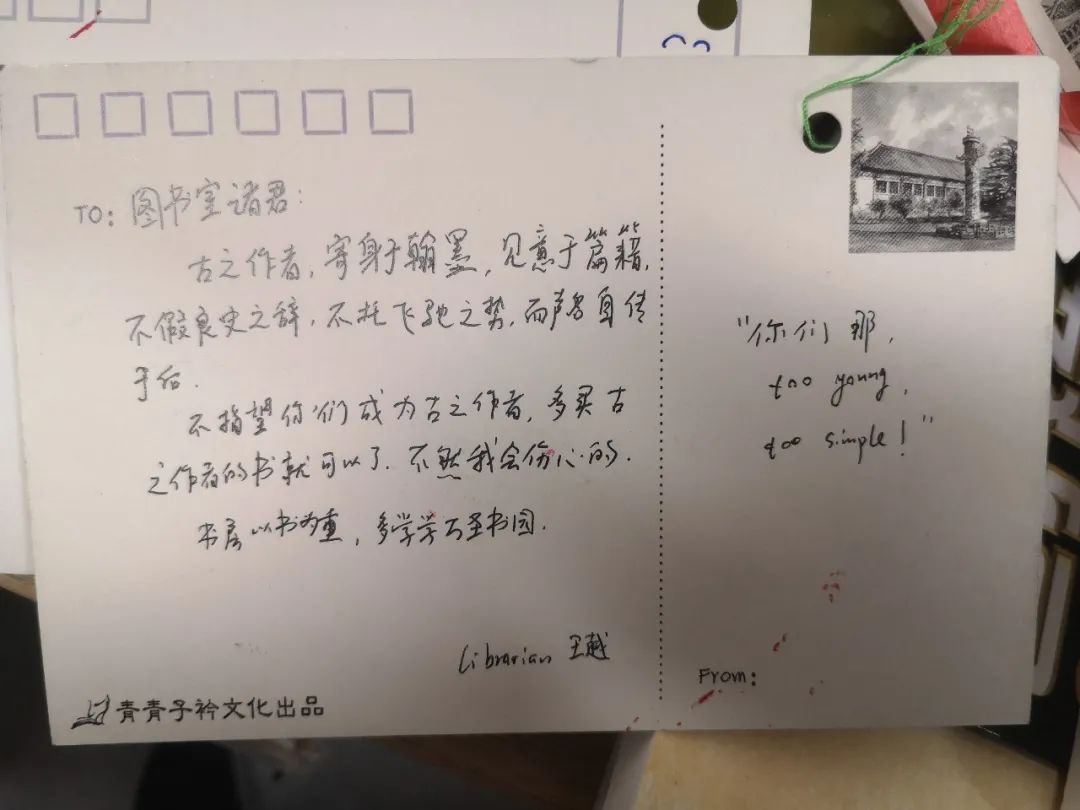 TO: 图书室诸君:
古之作者,寄身于翰墨,见意于篇籍,
不假良史之辞,不托飞驰之势,而声名自传
于后.
不指望你们成为古之作者,多买古
之作者的书就可以了.不然我会伤心的.
书房以书为重,多学学万圣书园.
Librarian 王越
青青子衿文化出品
"你们那,
too young,
too simple!"
From: